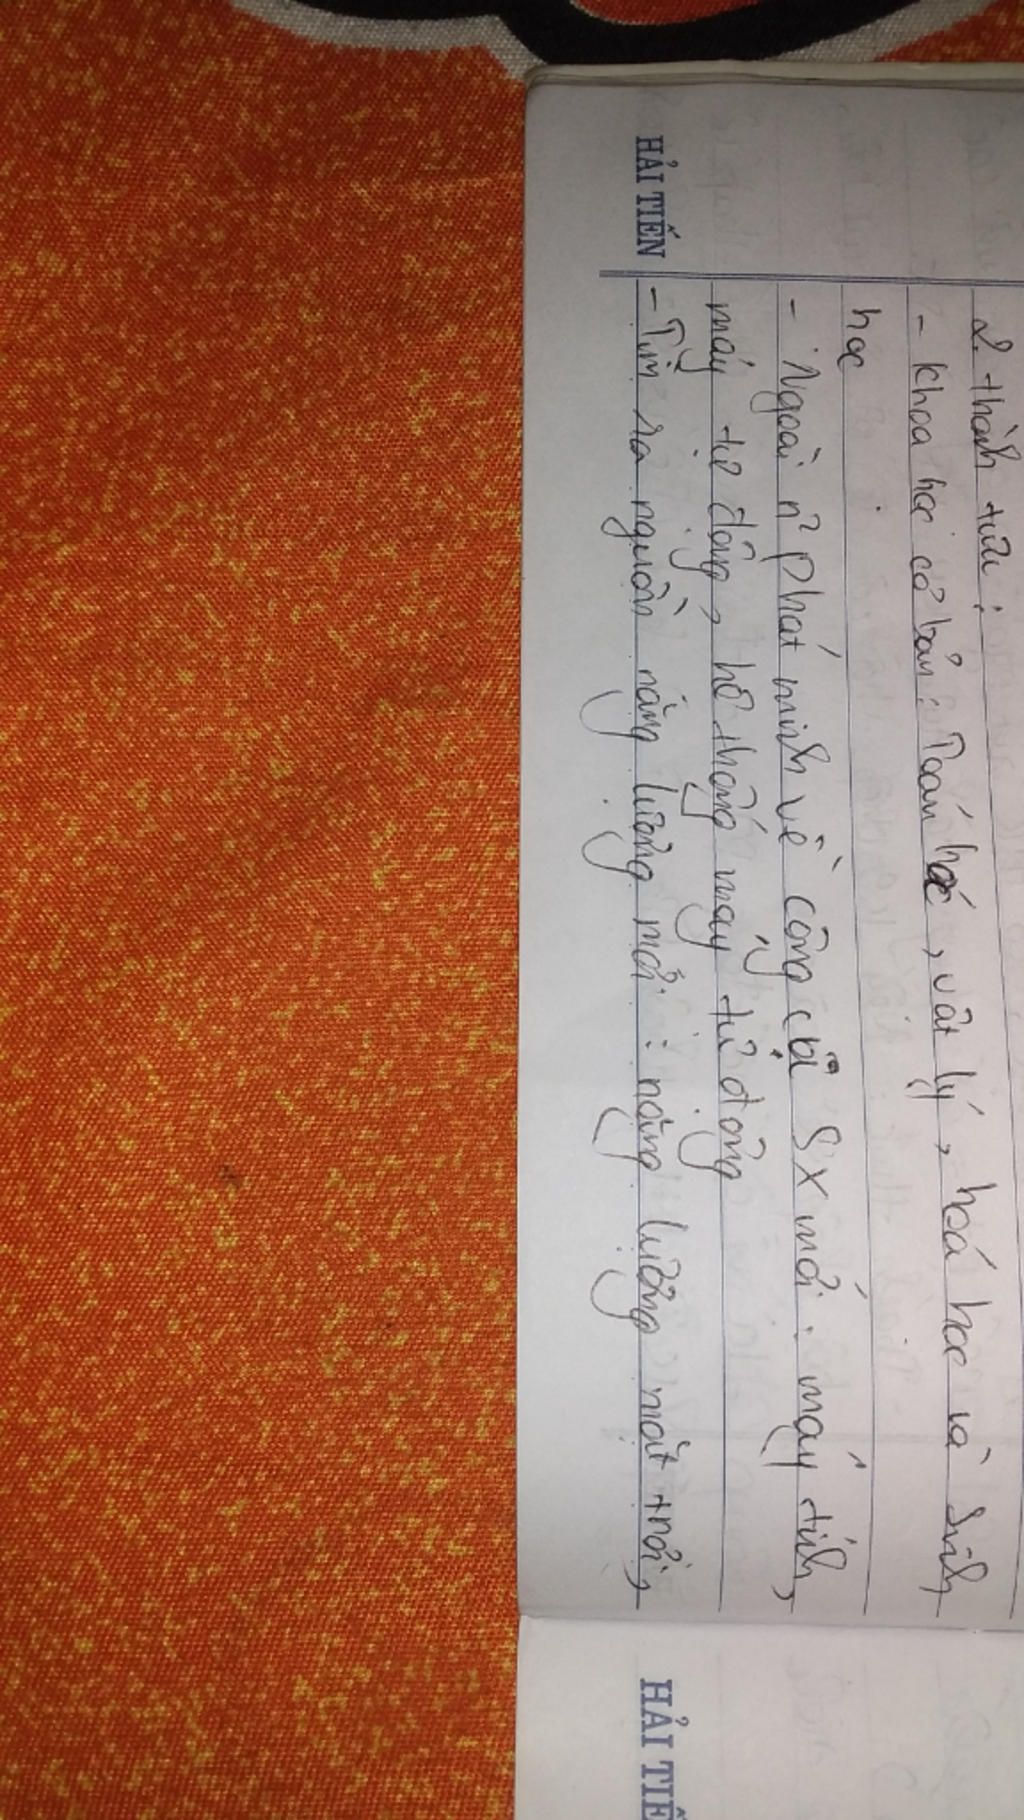 2. thành tựu :
- Khoa học cơ bản : Toán học, vật lý, hoá học và sinh
học
- Ngoài ra phát minh về công cụ SX mới : máy tính,
máy tự động, hệ thống máy tự động
- Tìm ra nguồn năng lượng mới : năng lượng mặt trời,
HẢI TIẾN
HẢI TIẾ